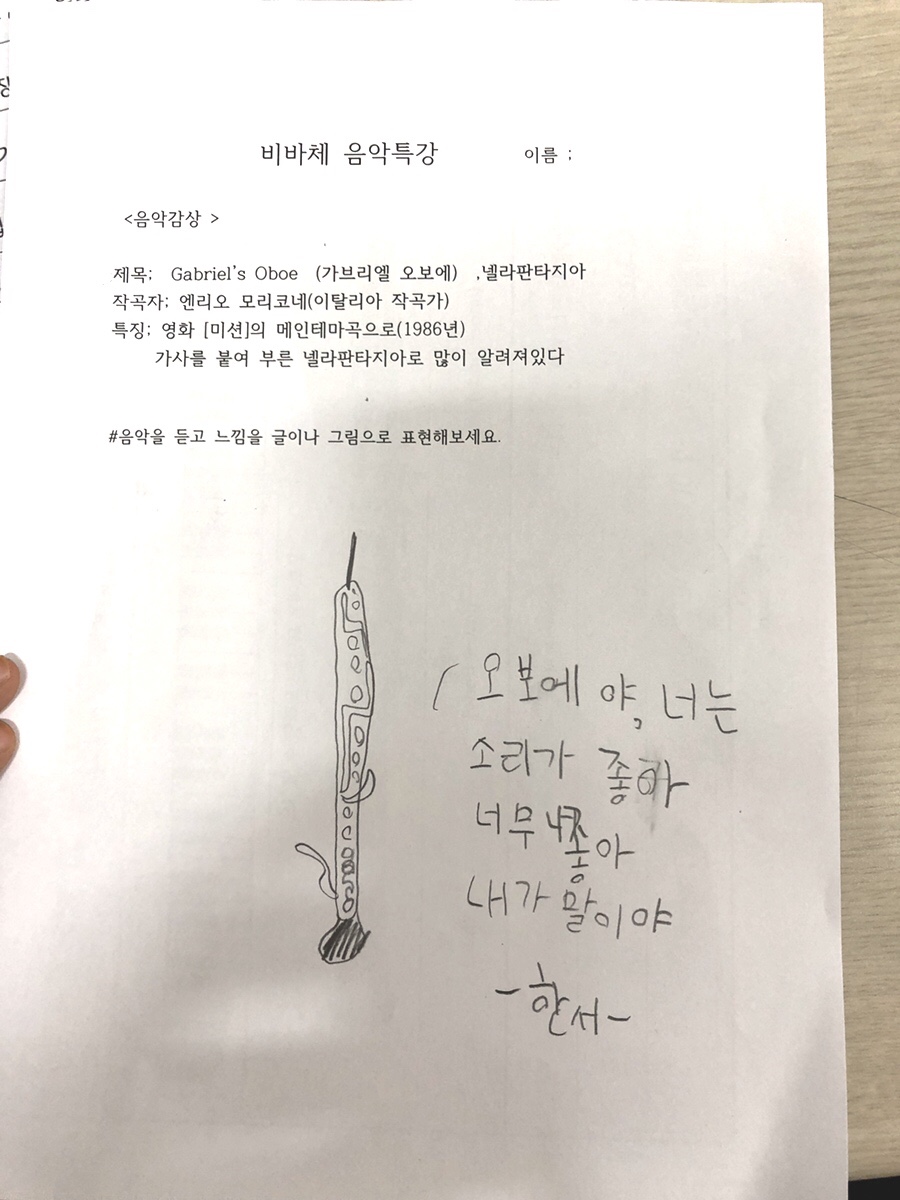 비바체 음악특강 이름 ;
<음악감상 >
제목; Gabriel's Oboe (가브리엘 오보에) ,넬라판타지아
작곡자; 엔리오 모리코네(이탈리아 작곡가)
특징; 영화 [미션]의 메인테마곡으로(1986년)
가사를 붙여 부른 넬라판타지아로 많이 알려져있다
#음악을 듣고 느낌을 글이나 그림으로 표현해보세요.
오보에 야, 너는
소리가 좋아
너무 좋아
내가 말이야
-한서-